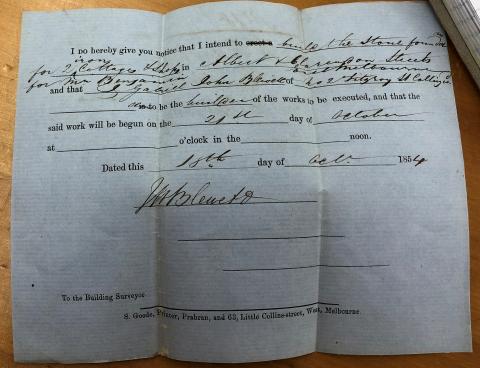 I do hereby give you notice that I intend to erect a build the stone foundation
for 2 iron Cottages & Shops in Albert & Clarendon Streets
for Mr Benjamin
and that I Gabriel John Blewett of 202 Fitzroy St Colling
to be the builder of the works to be executed, and that the
said work will be begun on the 21st day of October
at o'clock in the noon.
Dated this 18th day of Octr. 1854
To the Building Surveyor
S. Goode, Printer, Prahran, and 63, Little Collins-street, West, Melbourne.